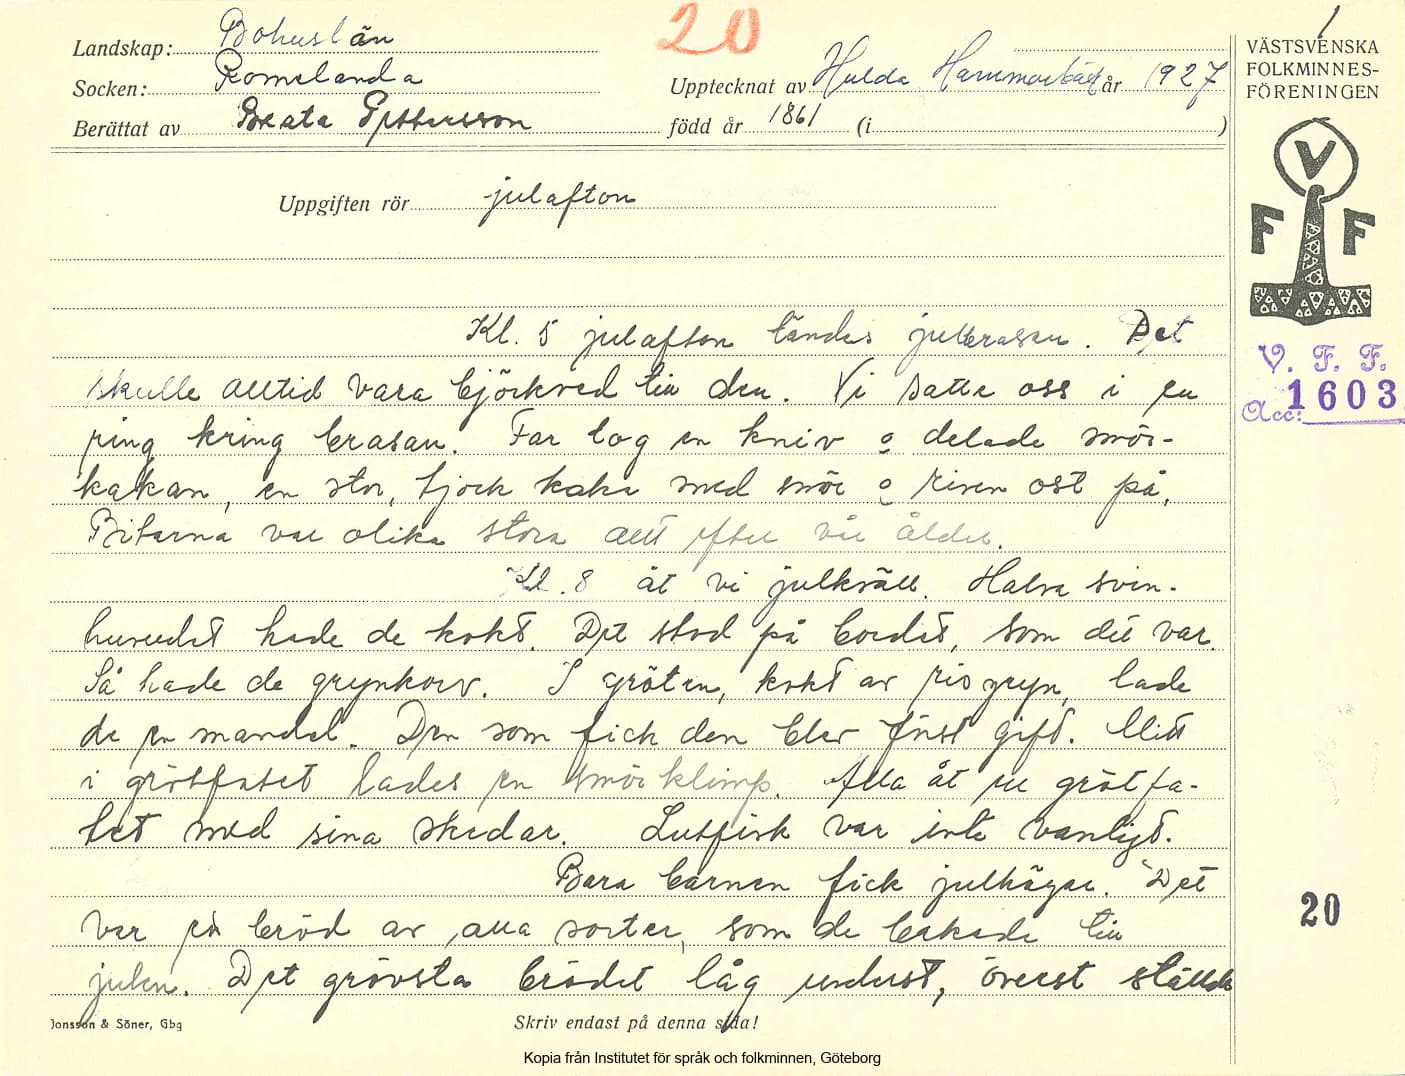 20
1
Landskap: Bohuslän
Socken: Romelanda
Upptecknat av Hulda Hammarbäck år 1927
Berättat av Beata Pettersson född år 1861 (i )
VÄSTSVENSKA
FOLKMINNES-
FÖRENINGEN
V
F F
Uppgiften rör julafton
V. F. F.
Acc: 1603
Kl. 5 julafton tändes julbrasan. Det
skulle alltid vara björkved till den. Vi satte oss i en
ring kring brasan. Far tog en kniv o delade smör-
kakan, en stor, tjock kaka med smör o riven ost på.
Bitarna var olika stora allt efter vår ålder.
Kl. 8 åt vi julkväll. Halva svin-
huvudet hade de kokt. Det stod på bordet, som det var.
Så hade de grynkorv. I gröten, kokt av risgryn, lade
de en mandel. Den som fick den blev först gift. Mitt
i grötfatet lades en smörklimp. Alla åt ur grötfa-
tet med sina skedar. Lutfisk var inte vanligt.
Bara barnen fick julhögar. Det
var bröd av alla sorter, som de bakade till
julen. Det grövsta brödet låg underst, överst ställde
20
Jonsson & Söner, Gbg
Skriv endast på denna sida!
Kopia från Institutet för språk och folkminnen, Göteborg